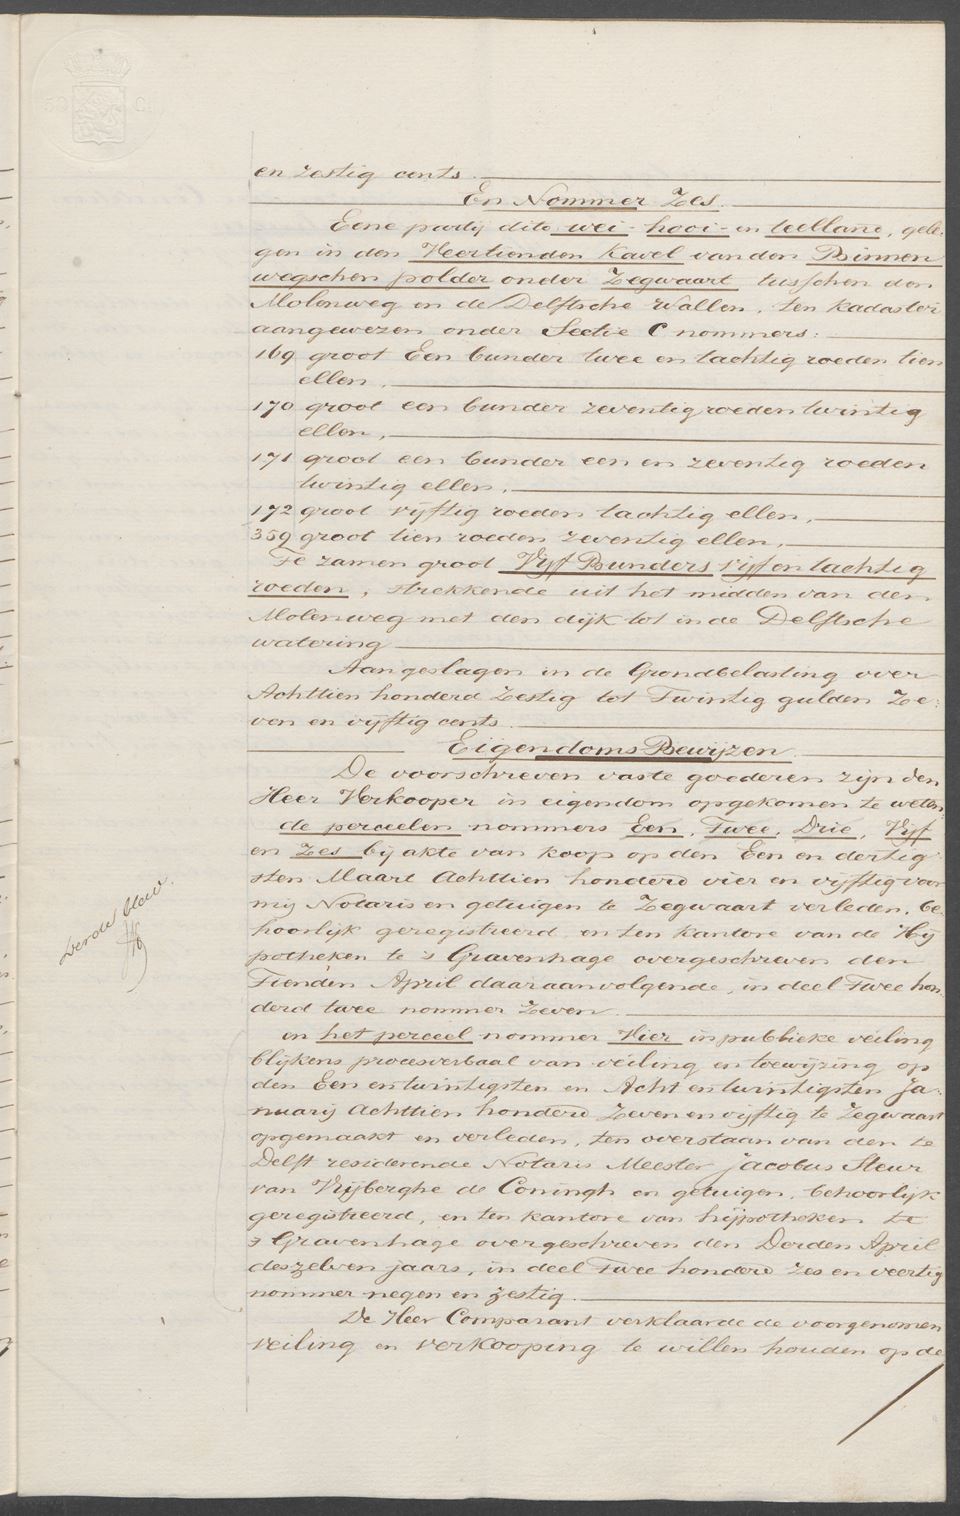 en zestig cents.
En Nommer Zes.
Eene partij dito wei- hooi- en teelland, gele-
gen in den Veertienden Kavel van den Binnen
wegschen polder onder Zegwaart tusschen den
Molenweg en de Delftsche Wallen, ten kadaster
aangewezen onder Sectie C nommers:
169 groot Een bunder twee en tachtig roeden tien
ellen,
170 groot een bunder zeventig roeden twintig
ellen,
171 groot een bunder een en zeventig roeden
twintig ellen,
172 groot vijftig roeden tachtig ellen,
359 groot tien roeden zeventig ellen,
Te zamen groot Vijf Bunders vijf en tachtig
roeden, strekkende uit het midden van den
Molenweg met den dijk tot in de Delftsche
watering
Aangeslagen in de Grondbelasting over
Achttien honderd zestig tot Twintig gulden Ze-
ven en vijftig cents.
Eigendoms Bewijzen.
De voorschreven vaste goederen zijn den
Heer Verkooper in eigendom opgekomen te weten
de perceelen nommers Een, Twee, Drie, Vijf
en Zes bij akte van koop op den Een en dertig
sten Maart Achttien honderd vier en vijftig voor
mij Notaris en getuigen te Zegwaart verleden, be-
hoorlijk geregistreerd en ten kantore van de Hij
potheken te 's Gravenhage overgeschreven den
Tienden April daaraanvolgende, in deel Twee hon-
derd twee nommer Zeven.
en het perceel nommer Vier in publieke veiling
blijkens procesverbaal van veiling en toewijzing op
den Een en twintigsten en Acht en twintigsten Ja-
nuarij Achttien honderd Zeven en vijftig te Zegwaart
opgemaakt en verleden, ten overstaan van den te
Delft residerende Notaris Meester Jacobus Steur
van Vrijberghe de Coningh en getuigen, behoorlijk
geregistreerd, en ten kantore van hijpotheken te
's Gravenhage overgeschreven den Derden April
deszelven jaars, in deel Twee honderd zes en veertig
nommer negen en zestig.
De Heer Comparant verklaarde de voorgenomen
veiling en verkooping te willen houden op de
Derde blad.